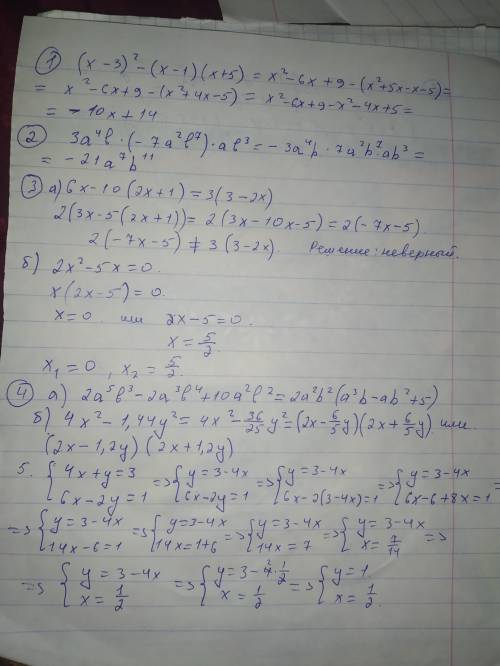 ① (x-3)² - (x-1)(x+5) = x²-6x+9-(x²+5x-x-5)=
= x²-6x+9-(x²+4x-5) = x²-6x+9-x²-4x+5=
= -10x+14
② 3a⁴b·(-7a²b⁷)·ab³ = -3a⁴b·7a²b⁷ab³=
= -21a⁷b¹¹
③ а) 6x-10(2x+1)=3(3-2x)
2(3x-5(2x+1))=2(3x-10x-5)=2(-7x-5)
2(-7x-5) ≠ 3(3-2x). Решение: неверный.
б) 2x²-5x=0.
x(2x-5)=0.
x=0 или 2x-5=0.
x=5/2.
x₁=0, x₂=5/2.
④ а) 2a⁵b³-2a³b⁴+10a²b²=2a²b²(a³b-ab²+5)
б) 4x²-1,44y²=4x²-36/25y²=(2x-6/5y)(2x+6/5y) или
(2x-1,2y)(2x+1,2y)
5. {4x+y=3 6x-2y=1 => {y=3-4x 6x-2y=1 => {y=3-4x 6x-2(3-4x)=1 => {y=3-4x 6x-6+8x=1 =
=> {y=3-4x 14x-6=1 => {y=3-4x 14x=1+6 => {y=3-4x 14x=7 => {y=3-4x x=7/14 =>
=> {y=3-4x x=1/2 => {y=3-4·1/2 x=1/2 => {y=1 x=1/2.